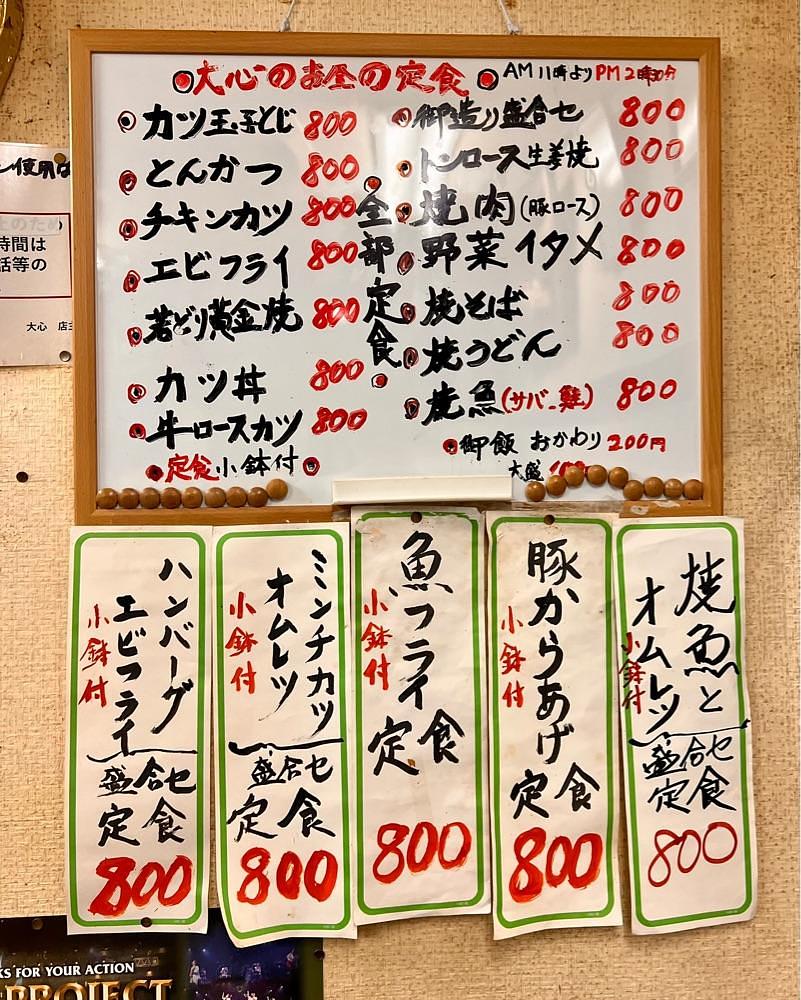 大心のお昼の定食 AM 11時より PM 2時30分
カツ玉子とじ 800
とんかつ 800
チキンカツ 800
エビフライ 800
若どり黄金焼 800
カツ丼 800
牛ロースカツ 800
定食小鉢付
全部定食
御造り盛合セ 800
トンロース生姜焼 800
焼肉(豚ロース) 800
野菜イタメ 800
焼そば 800
焼うどん 800
焼魚(サバ、鮭) 800
御飯 おかわり 200円
大盛
焼魚と
オムレツ
小鉢付
盛合セ
定食
800
豚からあげ
小鉢付
定食
800
魚フライ
小鉢付
定食
800
ミンチカツ
オムレツ
小鉢付
盛合セ
定食
800
ハンバーグ
エビフライ
小鉢付
盛合セ
定食
800
使用は
時間は
話等の
大心 店主
KS FOR YOUR ACTION
PROJECT